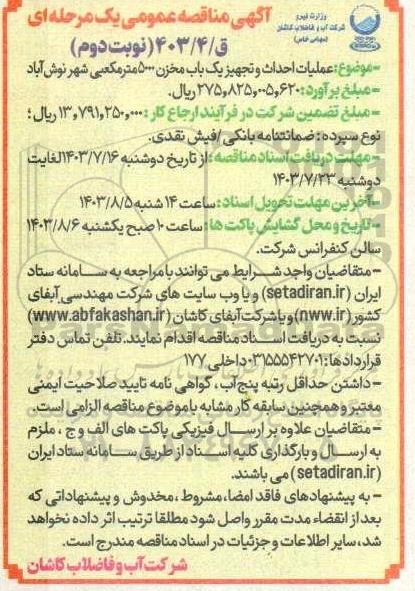 وزارت نیرو
شرکت آب و فاضلاب کاشان
(سهامی خاص)
آگهی مناقصه عمومی یک مرحله ای
ق/۴۰۳/۴ (نوبت دوم)
-موضوع: عملیات احداث و تجهیز یک باب مخزن ۵۰۰۰ مترمکعبی شهر نوش آباد
-مبلغ برآورد: ۲۷۵,۸۲۵,۰۰۵,۶۲۰ ریال.
-مبلغ تضمین شرکت در فرآیند ارجاع کار: ۱۳,۷۹۱,۲۵۰,۰۰۰ ریال؛
نوع سپرده: ضمانتنامه بانکی/فیش نقدی.
-مهلت دریافت اسناد مناقصه: از تاریخ دوشنبه ۱۴۰۳/۷/۱۶ لغایت
دوشنبه ۱۴۰۳/۷/۲۳
-آخرین مهلت تحویل اسناد: ساعت ۱۴ شنبه ۱۴۰۳/۸/۵
-تاریخ و محل گشایش پاکت ها: ساعت ۱۰ صبح یکشنبه ۱۴۰۳/۸/۶
سالن کنفرانس شرکت.
- متقاضیان واجد شرایط می توانند با مراجعه به سامانه ستاد
ایران (setadiran.ir) و یا وب سایت های شرکت مهندسی آبفای
کشور (nww.ir) و یا شرکت آبفای کاشان (www.abfakashan.ir)
نسبت به دریافت اسناد مناقصه اقدام نمایند. تلفن تماس دفتر
قراردادها: ۰۳۱۵۵۵۴۲۷۰۱ داخلی ۱۷۷
- داشتن حداقل رتبه پنج آب، گواهی نامه تایید صلاحیت ایمنی
معتبر و همچنین سابقه کار مشابه با موضوع مناقصه الزامی است.
- متقاضیان علاوه بر ارسال فیزیکی پاکت های الف و ج، ملزم
به ارسال و بارگذاری کلیه اسناد از طریق سامانه ستاد ایران
(setadiran.ir) می باشند.
- به پیشنهادهای فاقد امضا، مشروط، مخدوش و پیشنهاداتی که
بعد از انقضاء مدت مقرر واصل شود مطلقا ترتیب اثر داده نخواهد
شد، سایر اطلاعات و جزئیات در اسناد مناقصه مندرج است.
شرکت آب و فاضلاب کاشان